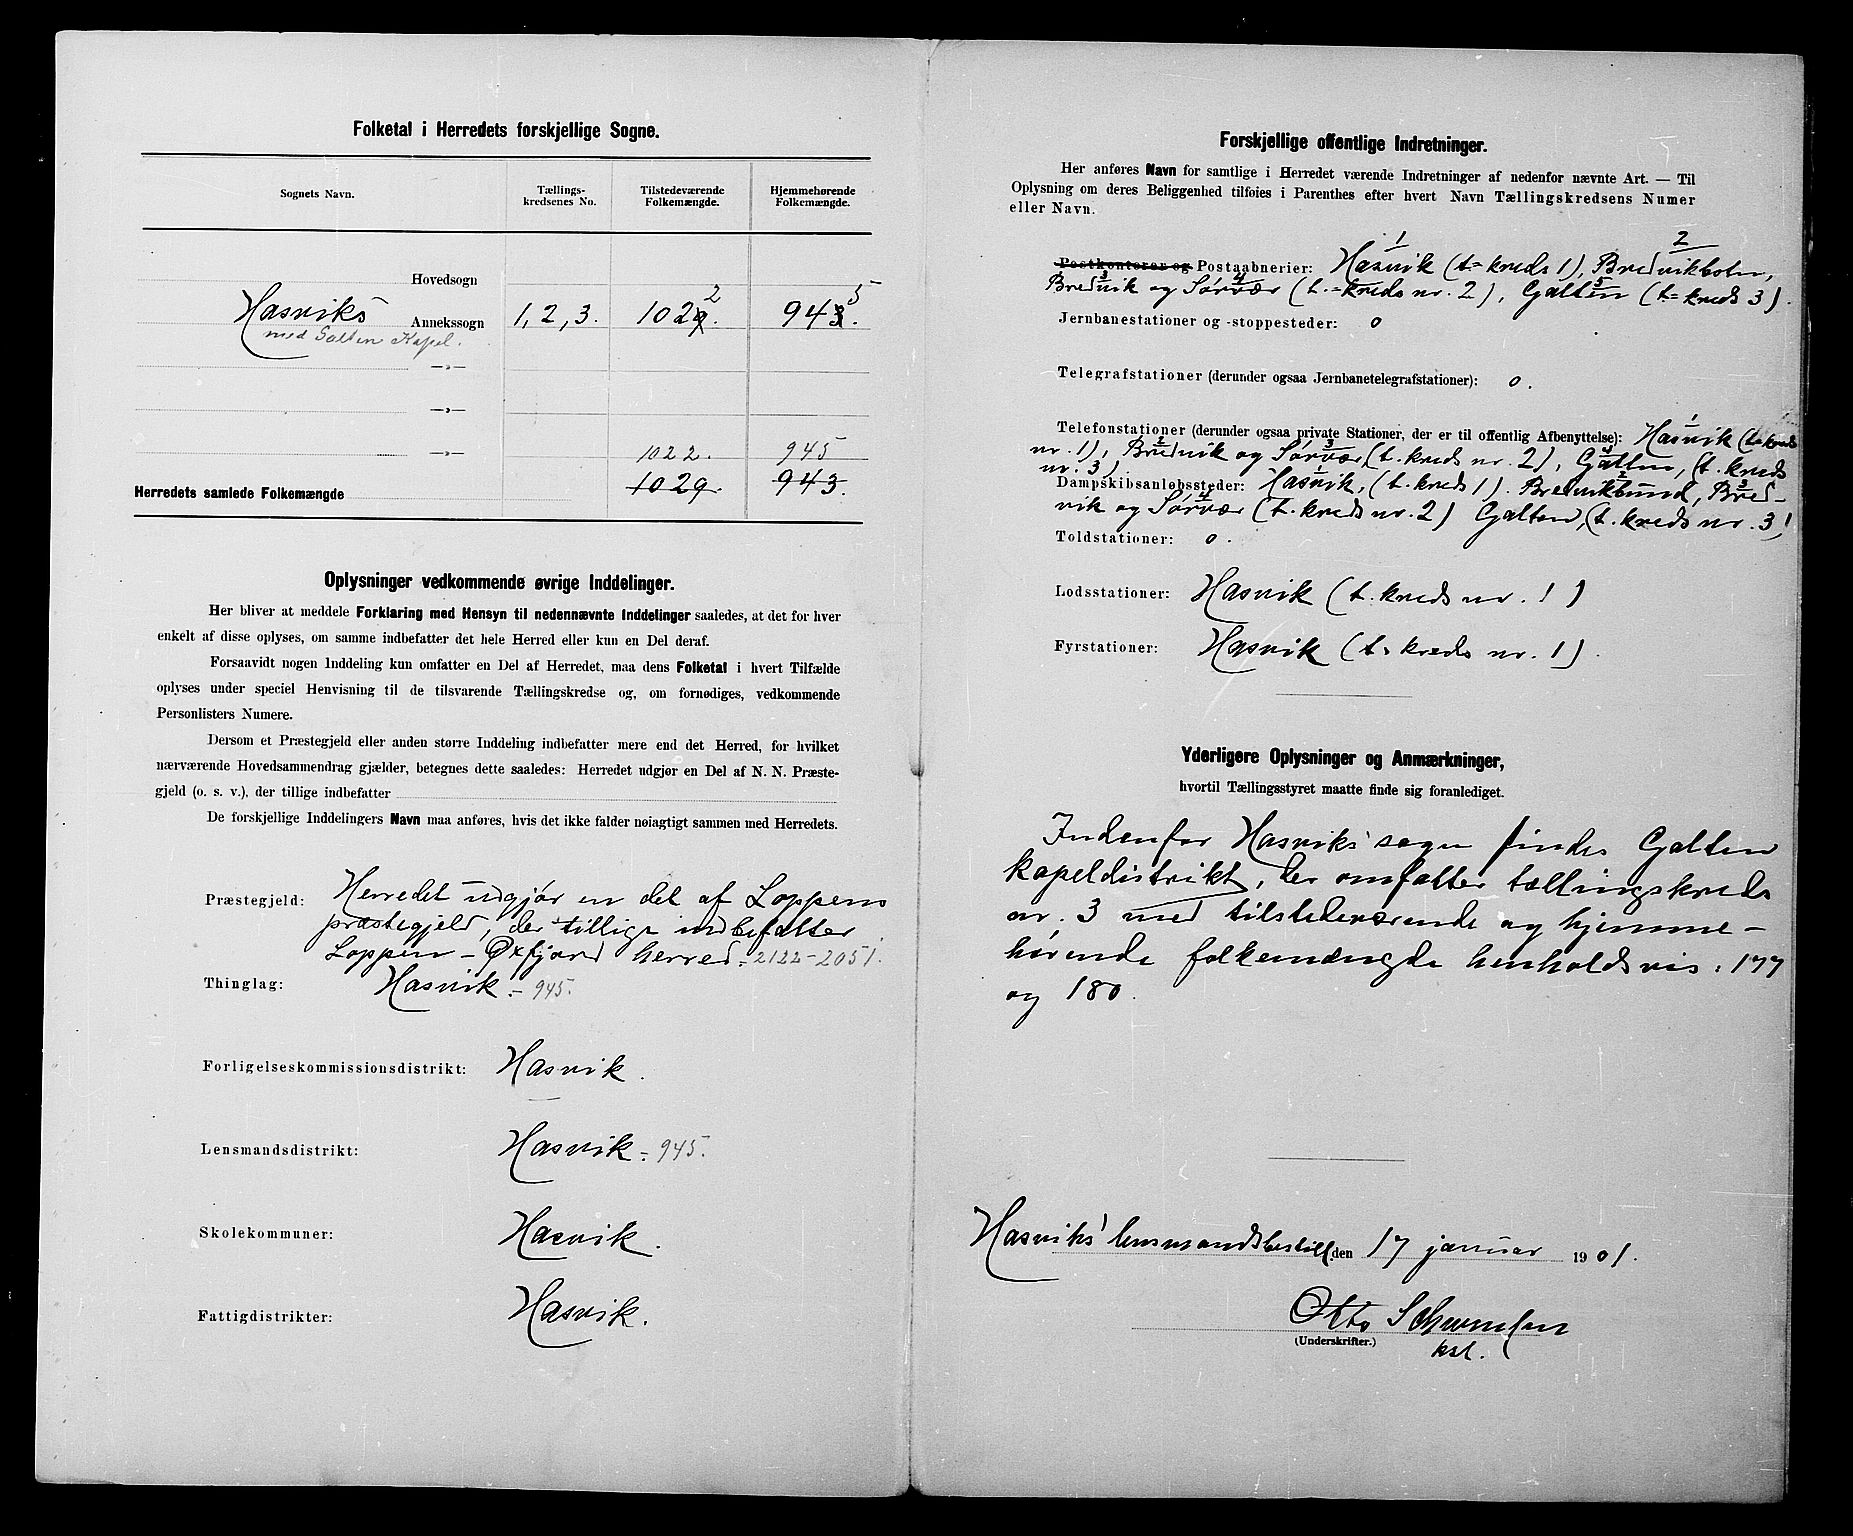 Folketal i Herredets forskjellige Sogne.
Sognets Navn. Tællings-kredsenes No. Tilstedeværende Folkemængde. Hjemmehørende Folkemængde.
Hovedsogn
Hasviks Annekssogn 1, 2, 3. 1029. 2 943. 5
med Galten Kapel.
—„—
—„—
—„— 1022. 945
Herredets samlede Folkemængde 1029. 943.
Oplysninger vedkommende øvrige Inddelinger.
Her bliver at meddele Forklaring med Hensyn til nedennævnte Inddelinger saaledes, at det for hver
enkelt af disse oplyses, om samme indbefatter det hele Herred eller kun en Del deraf.
Forsaavidt nogen Inddeling kun omfatter en Del af Herredet, maa dens Folketal i hvert Tilfælde
oplyses under speciel Henvisning til de tilsvarende Tællingskredse og, om fornødiges, vedkommende
Personlisters Numere.
Dersom et Præstegjeld eller anden større Inddeling indbefatter mere end det Herred, for hvilket
nærværende Hovedsammendrag gjælder, betegnes dette saaledes: Herredet udgjør en Del af N. N. Præste-
gjeld (o. s. v.), der tillige indbefatter
De forskjellige Inddelingers Navn maa anføres, hvis det ikke falder nøiagtigt sammen med Herredets.
Præstegjeld: Herredet udgjør en del af Loppens
præstegjeld, der tillige indbefatter
Loppen - Øxfjord herred = 2122-2051.
Thinglag: Hasvik = 945.
Forligelseskommissionsdistrikt: Hasvik.
Lensmandsdistrikt: Hasvik = 945.
Skolekommuner: Hasvik.
Fattigdistrikter: Hasvik.
Forskjellige offentlige Indretninger.
Her anføres Navn for samtlige i Herredet værende Indretninger af nedenfor nævnte Art. — Til
Oplysning om deres Beliggenhed tilføies i Parenthes efter hvert Navn Tællingskredsens Numer
eller Navn.
1 2
Postkontorer og Postaabnerier: Hasvik (t= kreds 1), Bredvikbotn,
3 4 5
Bredvik og Sørvær (t.=kreds nr. 2), Galten (t= kreds 3).
Jernbanestationer og -stoppesteder: 0
Telegrafstationer (derunder ogsaa Jernbanetelegrafstationer): 0.
Telefonstationer (derunder ogsaa private Stationer, der er til offentlig Afbenyttelse): Hasvik (t. kreds
nr. 1), Bredvik og Sørvær, (t. kreds nr. 2), Galten, (t. kreds
nr. 3)
Dampskibsanløbssteder: Hasvik, (t. kreds 1). Bredvikbund, Bred-
vik og Sørvær (t. kreds nr. 2) Galten, (t. kreds nr. 3)
Toldstationer: 0.
Lodsstationer: Hasvik (t. kreds nr. 1)
Fyrstationer: Hasvik (t= kreds nr. 1).
Yderligere Oplysninger og Anmærkninger,
hvortil Tællingsstyret maatte finde sig foranlediget.
Indenfor Hasviks sogn findes Galten
kapeldistrikt, der omfatter tællingskreds
nr. 3 med tilstedeværende og hjemme-
hørende folkemængde henholdsvis: 177
og 180.
Hasviks lensmandsbestill. den 17 januar 1901.
Otto
(Underskrifter.)
kst.